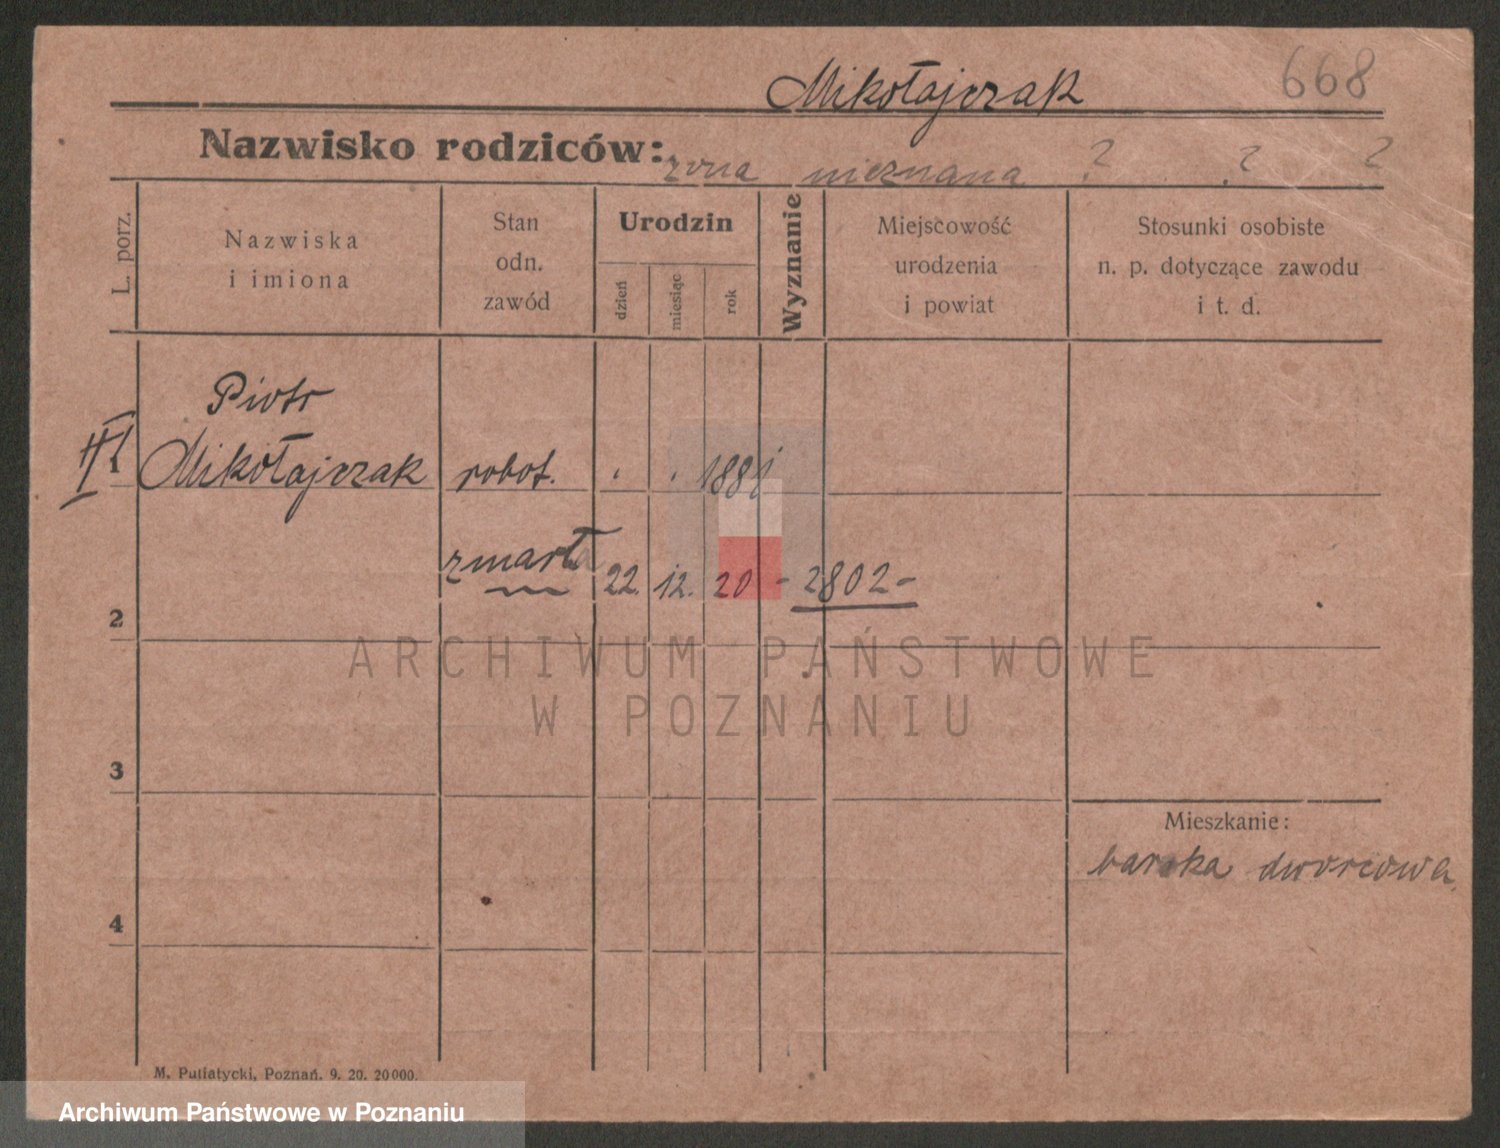 Mikołajczak 668
Nazwisko rodziców: żona nieznana ? ? ?
L. porz.
Nazwiska i imiona
Stan odn. zawód
Urodzin
dzień
miesiąc
rok
Wyznanie
Miejscowość urodzenia i powiat
Stosunki osobiste n. p. dotyczące zawodu i t. d.
Piotr
1 Mikołajczak robot. . . 1881
zmarł 22. 12. 20 - 2802-
2
ARCHIWUM PAŃSTWOWE
W POZNANIU
3
Mieszkanie:
baraka dworcowa
4
M. Putiatycki, Poznań. 9. 20. 20000.
Archiwum Państwowe w Poznaniu